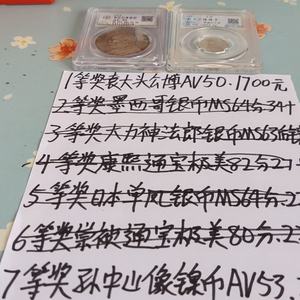 1等奖袁大头公博AV50.1700元
2等奖墨西哥银币MS64分34
3等奖大力神法郎银币MS63
4等奖康熙通宝极美82分21
5等奖日本单凤银币MS64分.2
6等奖崇祯通宝极美80分.2
7等奖孙中山像镍币AV53.